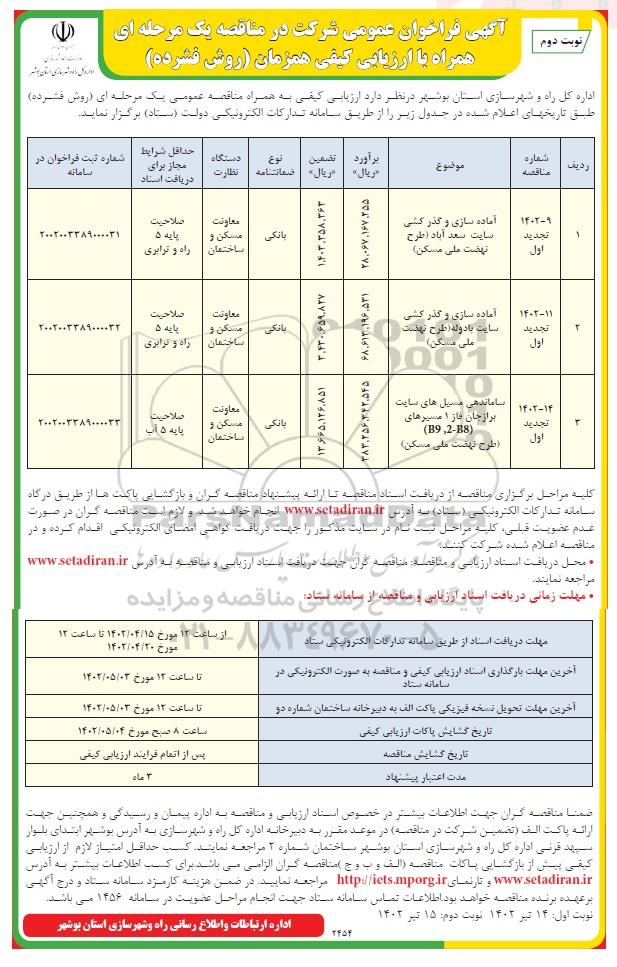 نوبت دوم
آگهی فراخوان عمومی شرکت در مناقصه یک مرحله ای
همراه با ارزیابی کیفی همزمان (روش فشرده)
اداره کل راه و شهرسازی استان بوشهر
اداره کل راه و شهرسازی استان بوشهر درنظر دارد ارزیابی کیفی به همراه مناقصه عمومی یک مرحله ای (روش فشرده)
طبق تاریخهای اعلام شده در جدول زیر را از طریق سامانه تدارکات الکترونیکی دولت (ستاد) برگزار نماید.
ردیف | شماره مناقصه | موضوع | برآورد «ریال» | تضمین «ریال» | نوع ضمانتنامه | دستگاه نظارت | حداقل شرایط مجاز برای دریافت اسناد | شماره ثبت فراخوان در سامانه
۱ | ۱۴۰۲-۹ تجدید اول | آماده سازی و گذر کشی سایت سعد آباد (طرح نهضت ملی مسکن) | ۲۸,۰۶۷,۱۶۷,۲۵۵ | ۱,۴۰۳,۳۵۸,۳۶۳ | بانکی | معاونت مسکن و ساختمان | صلاحیت پایه ۵ راه و ترابری | ۲۰۰۲۰۰۳۳۸۹۰۰۰۰۳۱
۲ | ۱۴۰۲-۱۱ تجدید اول | آماده سازی و گذر کشی سایت بادوله(طرح نهضت ملی مسکن) | ۶۸,۶۱۳,۱۹۶,۵۳۱ | ۳,۴۳۰,۶۵۹,۸۲۷ | بانکی | معاونت مسکن و ساختمان | صلاحیت پایه ۵ راه و ترابری | ۲۰۰۲۰۰۳۳۸۹۰۰۰۰۳۲
۳ | ۱۴۰۲-۱۴ تجدید اول | ساماندهی مسیل های سایت برازجان فاز ۱ مسیرهای (B9 ,2-B8) (طرح نهضت ملی مسکن) | ۳۸۳,۲۵۶,۳۴۲,۵۴۵ | ۱۳,۶۶۵,۱۲۶,۸۵۱ | بانکی | معاونت مسکن و ساختمان | صلاحیت پایه ۵ آب | ۲۰۰۲۰۰۳۳۸۹۰۰۰۰۳۳
کلیه مراحل برگزاری مناقصه از دریافت اسناد مناقصه تا ارائه پیشنهاد مناقصه گران و بازگشایی پاکت ها از طریق درگاه
سامانه تدارکات الکترونیکی (ستاد) به آدرس www.setadiran.ir انجام خواهد شد. و لازم است مناقصه گران در صورت
عدم عضویت قبلی، کلیه مراحل ثبت نام در سایت مذکور را جهت دریافت گواهی امضای الکترونیکی اقدام کرده و در
مناقصه اعلام شده شرکت کنند.
• محل دریافت اسناد ارزیابی و مناقصه: مناقصه گران جهت دریافت اسناد ارزیابی و مناقصه به آدرس www.setadiran.ir
مراجعه نمایند.
• مهلت زمانی دریافت اسناد ارزیابی و مناقصه از سامانه ستاد:
پایگاه اطلاع رسانی مناقصه و مزایده
۰۲۱-۸۸۳۴۹۶۷۰-۵
مهلت دریافت اسناد از طریق سامانه تدارکات الکترونیکی ستاد | از ساعت ۱۲ مورخ ۱۴۰۲/۰۴/۱۵ تا ساعت ۱۲ مورخ ۱۴۰۲/۰۴/۲۰
آخرین مهلت بارگذاری اسناد ارزیابی کیفی و مناقصه به صورت الکترونیکی در سامانه ستاد | تا ساعت ۱۲ مورخ ۱۴۰۲/۰۵/۰۳
آخرین مهلت تحویل نسخه فیزیکی پاکت الف به دبیرخانه ساختمان شماره دو | تا ساعت ۱۲ مورخ ۱۴۰۲/۰۵/۰۳
تاریخ گشایش پاکات ارزیابی کیفی | ساعت ۸ صبح مورخ ۱۴۰۲/۰۵/۰۴
تاریخ گشایش مناقصه | پس از اتمام فرایند ارزیابی کیفی
مدت اعتبار پیشنهاد | ۳ ماه
ضمنا مناقصه گران جهت اطلاعات بیشتر در خصوص اسناد ارزیابی و مناقصه به اداره پیمان و رسیدگی و همچنین جهت
ارائه پاکت الف (تضمین شرکت در مناقصه) در موعد مقرر به دبیرخانه اداره کل راه و شهرسازی به آدرس بوشهر ابتدای بلوار
سپهبد قرنی اداره کل راه و شهرسازی استان بوشهر ساختمان شماره ۲ مراجعه نمایند. کسب حداقل امتیاز لازم از ارزیابی
کیفی پیش از بازگشایی پاکات مناقصه (الف و ب و ج )مناقصه گران الزامی می باشد.برای کسب اطلاعات بیشتر به آدرس
www.setadiran.ir و تارنمای http://iets.mporg.ir مراجعه نمایید. در ضمن هزینه کارمزد سامانه ستاد و درج آگهی
برعهده برنده مناقصه خواهد بود.اطلاعات تماس سامانه ستاد جهت انجام مراحل عضویت در سامانه ۱۴۵۶ می باشد.
نوبت اول: ۱۴ تیر ۱۴۰۲ نوبت دوم: ۱۵ تیر ۱۴۰۲
اداره ارتباطات واطلاع رسانی راه وشهرسازی استان بوشهر
۲۴۵۴